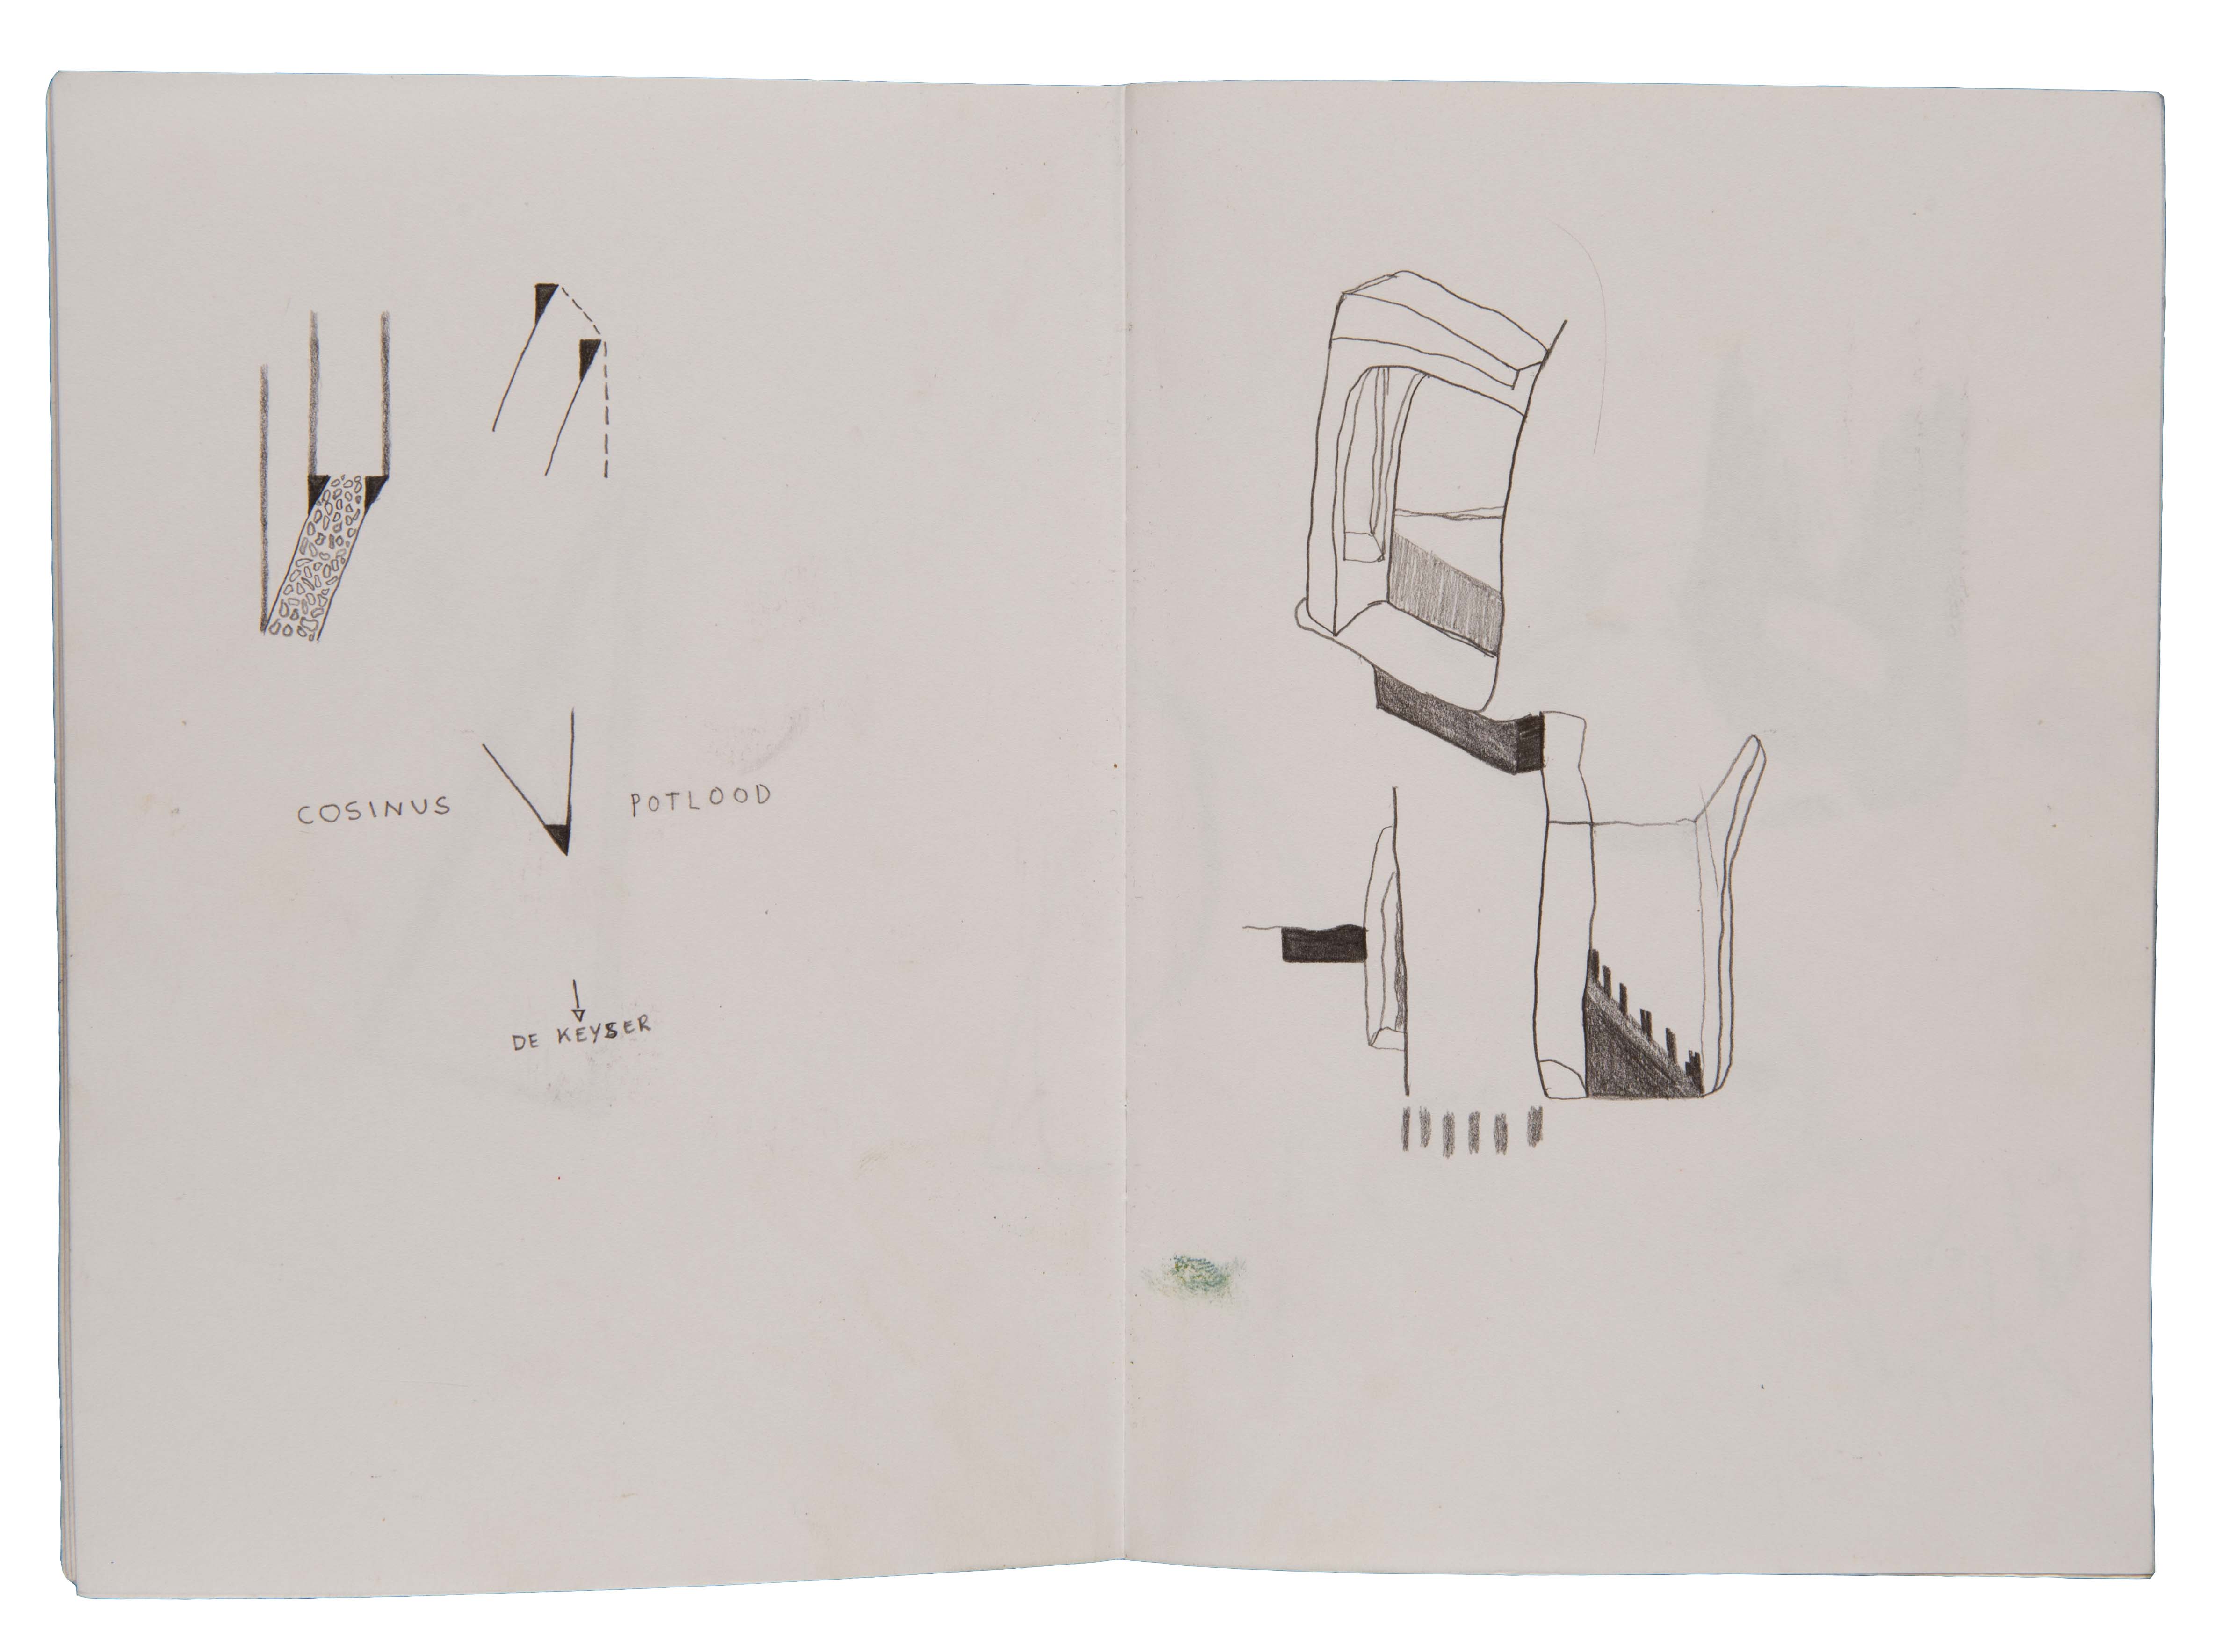 COSINUS POTLOOD
DE KEYSER